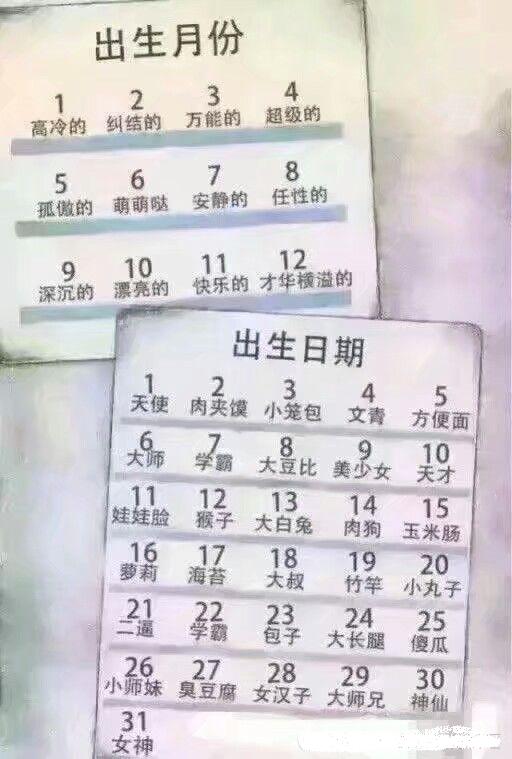 出生月份
1 2 3 4
高冷的 纠结的 万能的 超级的
5 6 7 8
孤傲的 萌萌哒 安静的 任性的
9 10 11 12
深沉的 漂亮的 快乐的 才华横溢的
出生日期
1 2 3 4 5
天使 肉夹馍 小笼包 文青 方便面
6 7 8 9 10
大师 学霸 大豆比 美少女 天才
11 12 13 14 15
娃娃脸 猴子 大白兔 肉狗 玉米肠
16 17 18 19 20
萝莉 海苔 大叔 竹竿 小丸子
21 22 23 24 25
二逼 学霸 包子 大长腿 傻瓜
26 27 28 29 30
小师妹 臭豆腐 女汉子 大师兄 神仙
31
女神